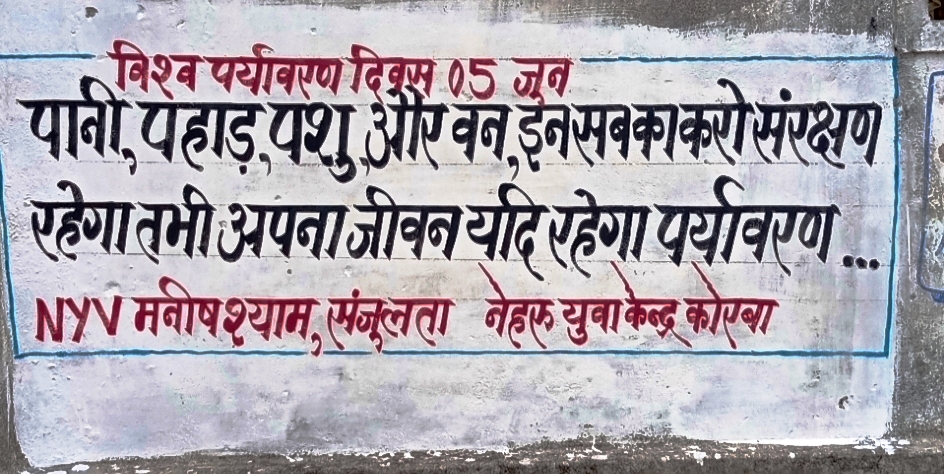 विश्व पर्यावरण दिवस 05 जून
पानी, पहाड़, पशु, और वन, इन सब का करो संरक्षण
रहेगा तभी अपना जीवन यदि रहेगा पर्यावरण...
NYV मनीष श्याम, संजूलता नेहरू युवा केन्द्र कोरबा